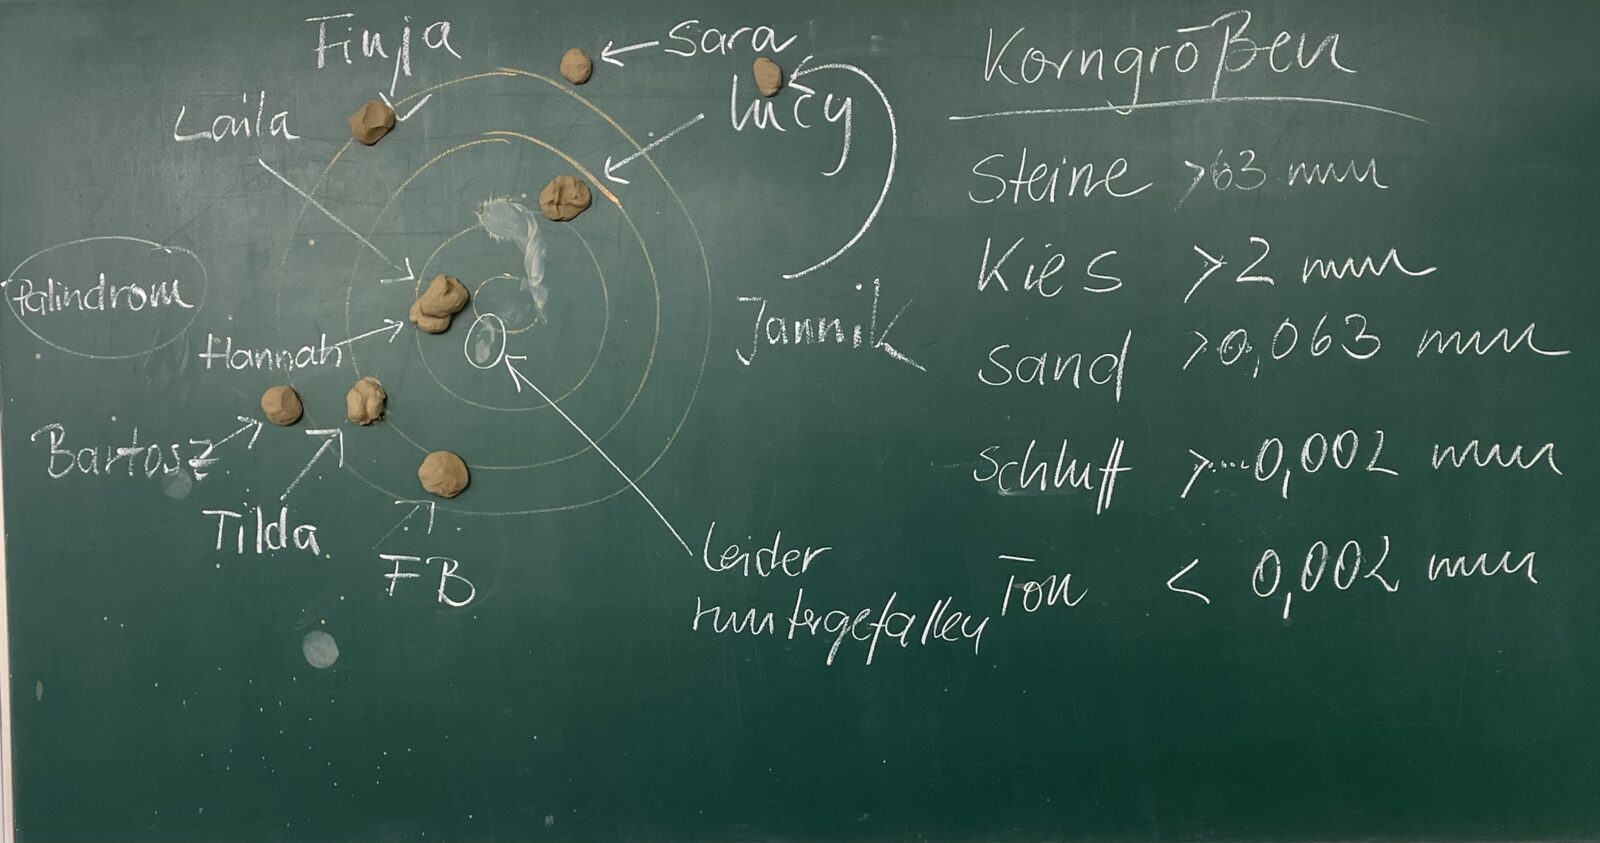 Finja
Sara
Laila
Lucy
Palindrom
Hannah
Jannik
Bartosz
Tilda
FB
Leider
runtergefallen
Korngrößen
Steine >63 mm
Kies >2 mm
Sand >0,063 mm
Schluff >0,002 mm
Ton < 0,002 mm